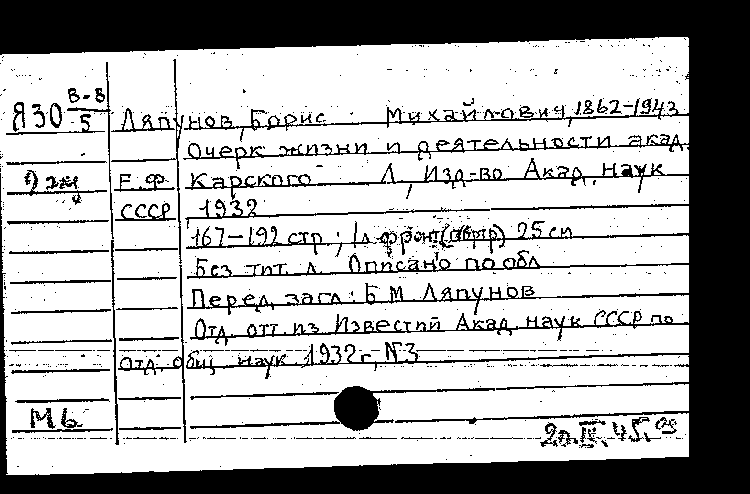 В-8
Я30 5 Ляпунов, Борис Михайлович, 1862-1943
Очерк жизни и деятельности акад.
2 экз Е. Ф. Карского Л, Изд-во Акад. наук
СССР 1932
167-192 стр.; 1 л фронт (портр) 25 см
Без тит. л. Описано по обл
Перед загл: Б М Ляпунов
Отд. отт. из Известий Акад наук СССР по
Отд. общ наук 1932 г, №3
МБ
20.IV.45.